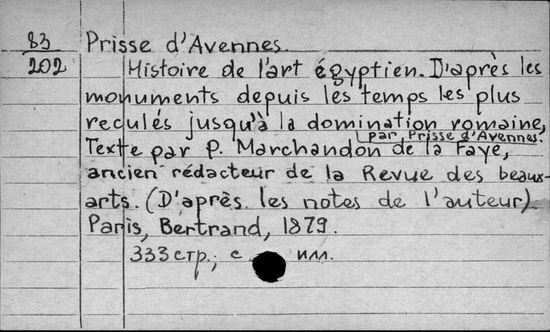 83 Prisse d'Avennes.
202 Histoire de l'art égyptien. D'après les
monuments depuis les temps les plus
reculés jusqu'à la domination romaine,
par Prisse d'Avennes.
Texte par P. Marchandon de la Faye,
ancien rédacteur de la Revue des beaux-
arts. (D'après les notes de l'auteur)
Paris, Bertrand, 1879.
333 стр.; с илл.